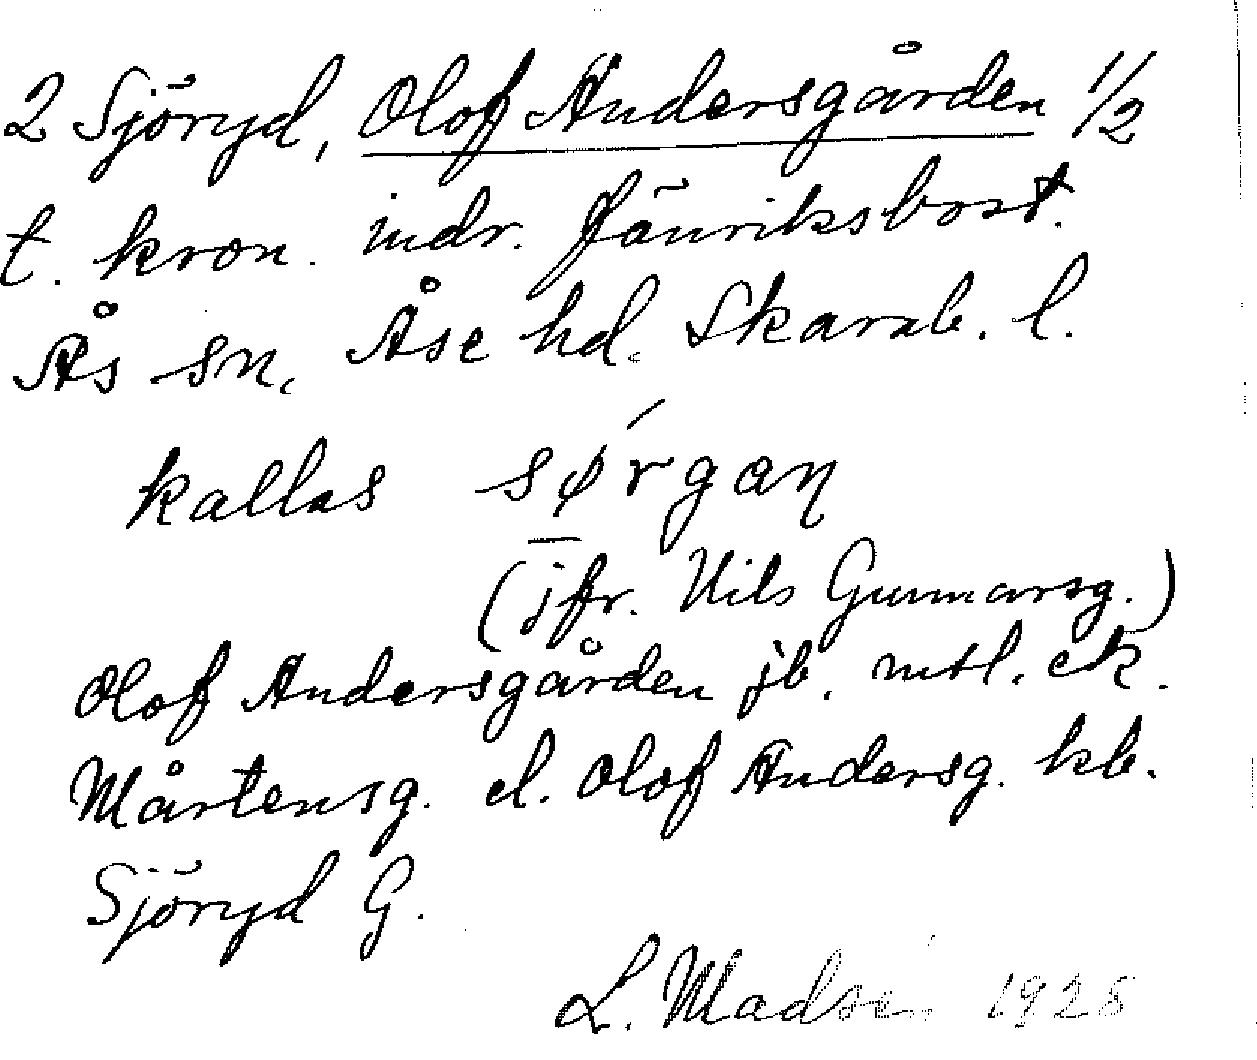 2 Sjöryd, Olof Andersgården 1/2
t. kron. indr. fänriksbost.
Ås sn, Åse hd. Skarab. l.
kallas sørgan
(jfr. Nils Gunnarsg.)
Olof Andersgården jb. mtl. ek.
Mårtensg. el. Olof Andersg. kb.
Sjöryd G.
L. Madsen 1928